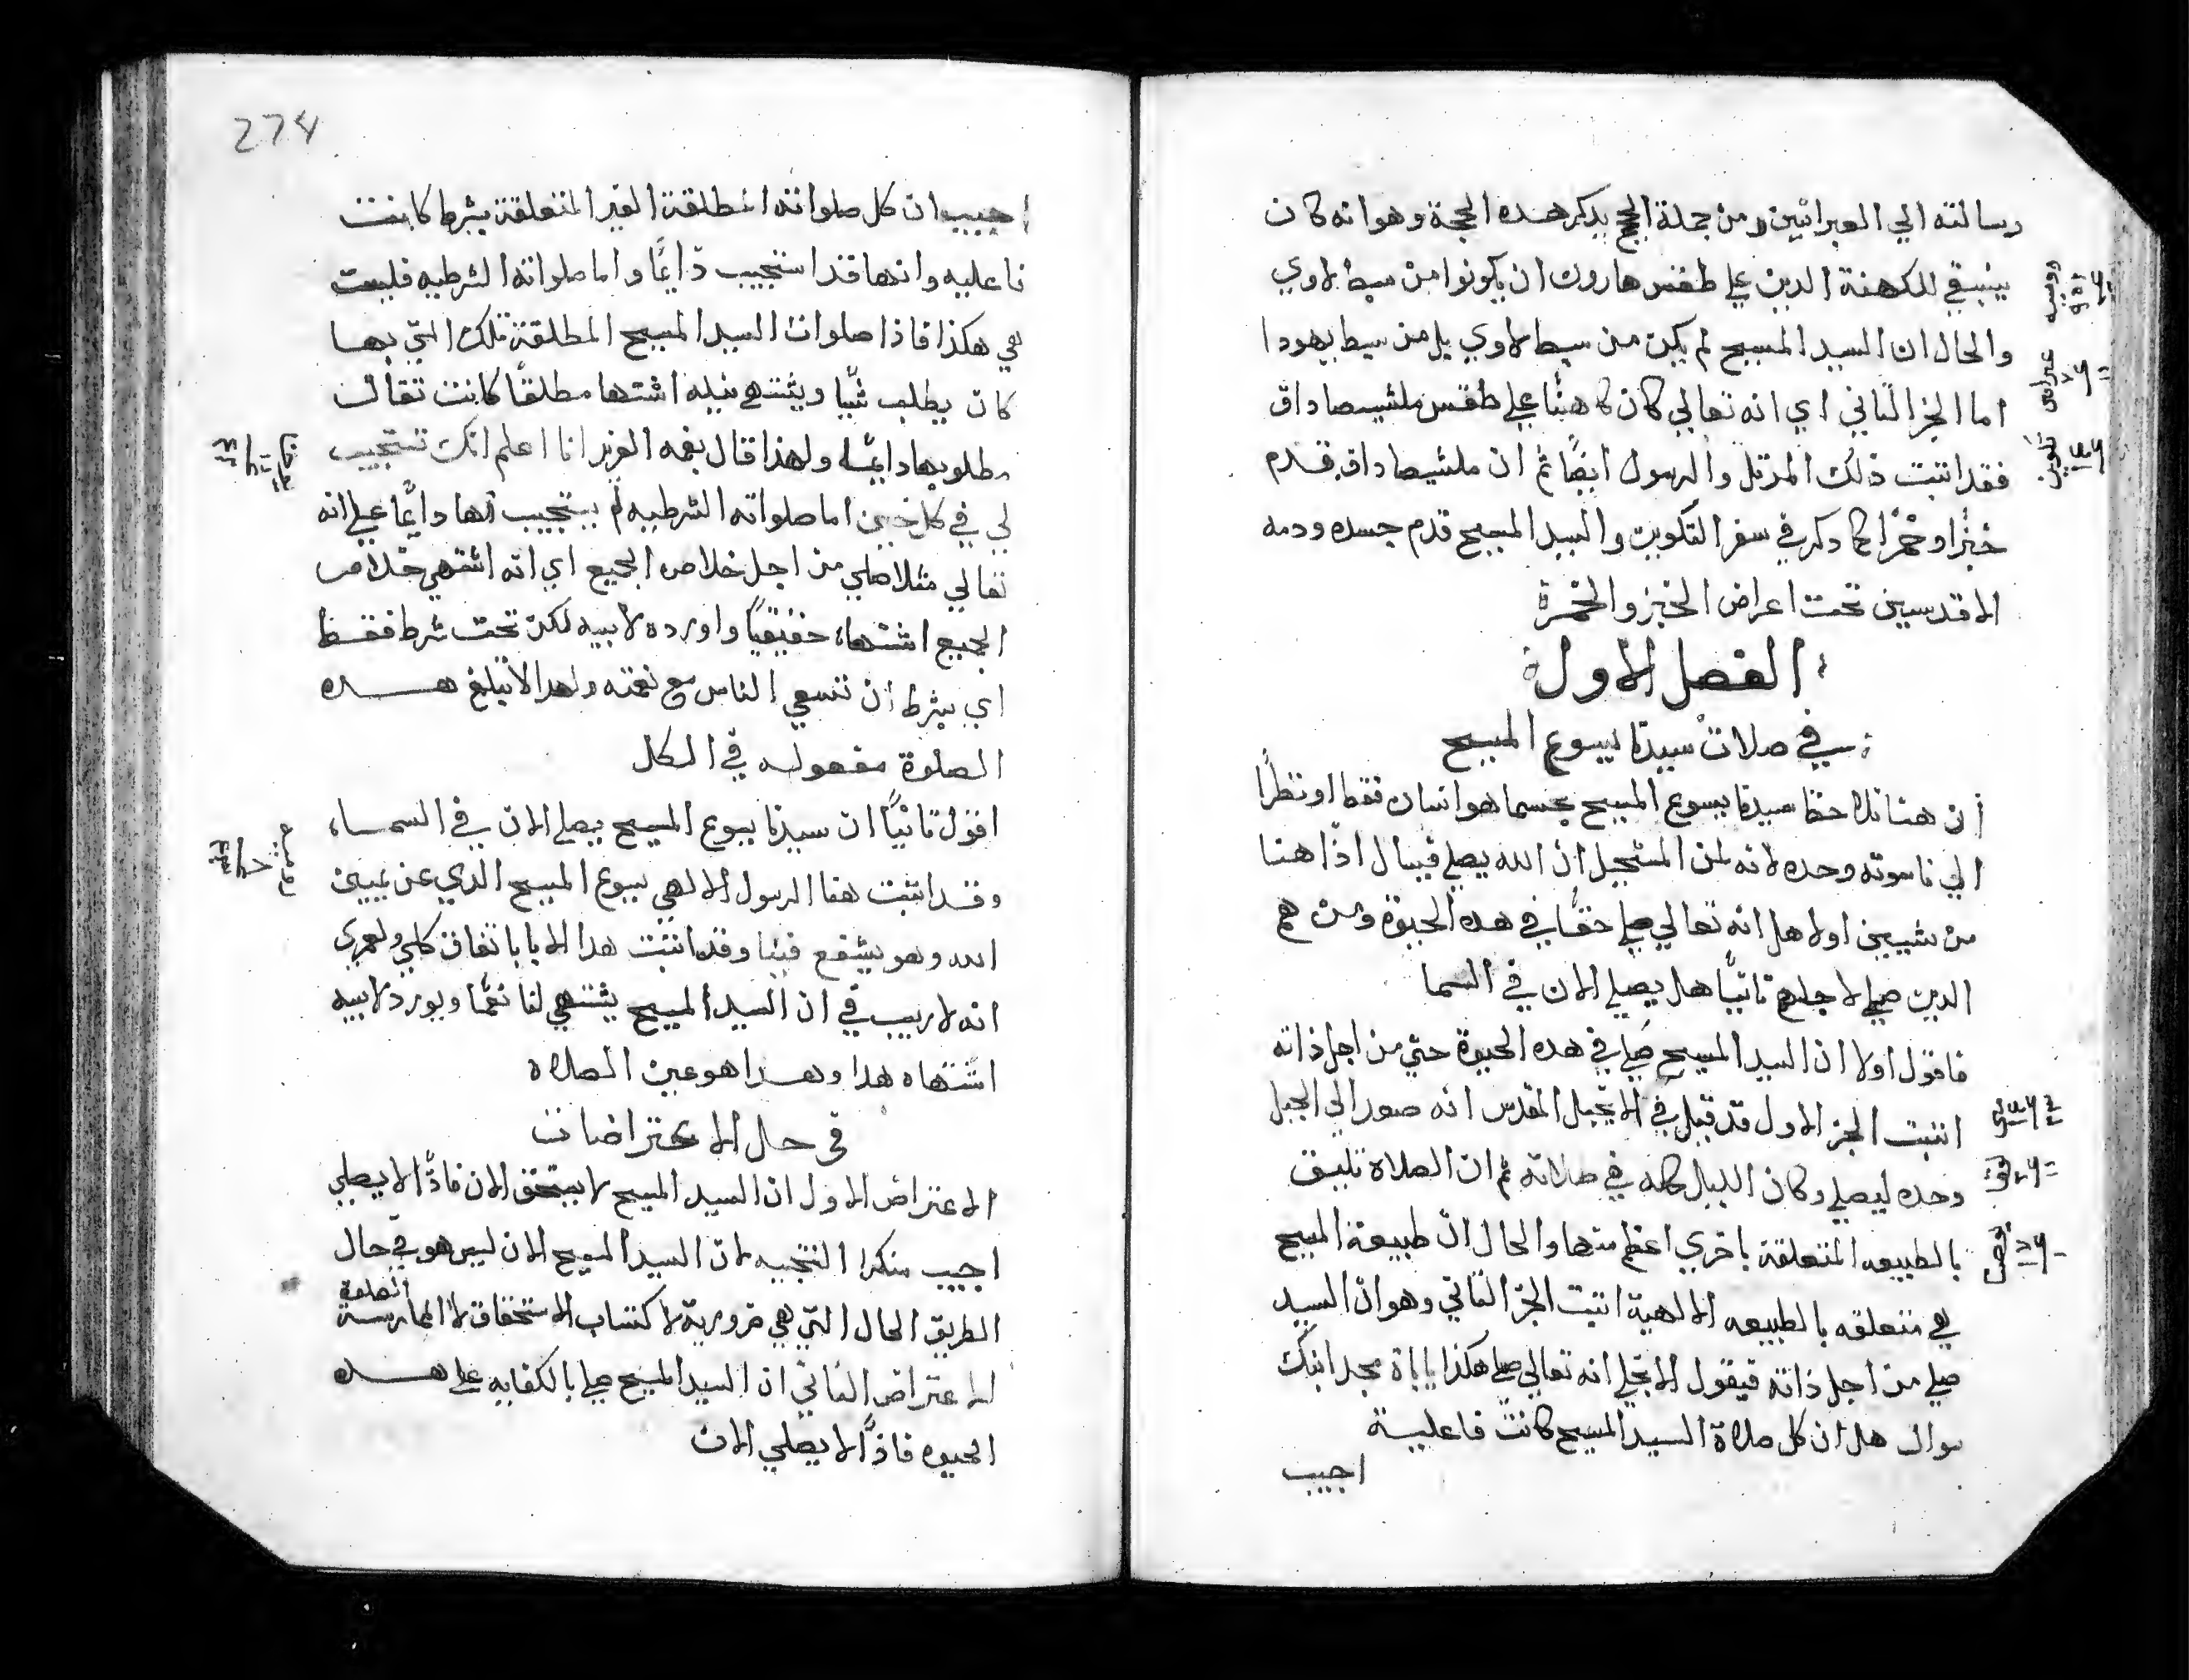 رسالته الي العبرانيين ومن جملة الحجج يدكر هده الحجة وهو انه كان
ينبغي للكهنة الدين علي طقس هارون ان يكونوا من سبط لاوي
والحال ان السيد المسيح لم يكن من سبط لاوي بل من سبط يهودا
اما الجز التاني اي انه تعالي كان كاهنًا علي طقس ملشيصاداق
فقد اتبت ذلك المرتل والرسول ايضًا ثم ان ملشيصاداق قدم
خبزًا وخمرًا كما دكر في سفر التكوين والسيد المسيح قدم جسده ودمه
الاقدسين تحت اعراض الخبز والخمرة
الفصل الاول
في صلات سيدنا يسوع المسيح
ان هنا نلاحظ سيدنا يسوع المسيح بحسما هو انسان فقط او نظرًا
الي ناسوته وحده لانه لمن المستحيل ان الله يصلي فيسال اذًا هنا
من شييين اولا هل انه تعالي صلي حقًا في هده الحيوة ومن هم
الدين صلي لاجلهم تانيًا هل يصلي الان في السما
فاقول اولا ان السيد المسيح صلي في هده الحيوة حتي من اجل ذاته
اتبت الجز الاول قد قيل في الانجيل المقدس انه صعد الي الجبل
وحده ليصلي وكان الليال كله في صلاته ثم ان الصلاة تليق
بالطبيعه المتعلقة باخري اعظم منها والحال ان طبيعة المسيح
هي متعلقه بالطبيعه الالهية اتبت الجز التاني وهو ان السيد
صلي من اجل ذاته فيقول الانجيل انه تعالي صلي هكذا ياباة مجد ابنك
سوال هل ان كل صلاة السيد المسيح كانت فاعلية
اجيب
274
اجيب ان كل صلواته المطلقة الغير المتعلقة بشرط كانت
فاعليه وانها قد استجيب دايمًا واما صلواته الشرطيه فليست
هي هكذا فاذا صلوات السيد المسيح المطلقة تلك التي بها
كان يطلب شيًا ويشتهي نيله اشتها مطلقًا كانت تنال
مطلوبها دايمًا ولهذا قال بفمه العزيز انا اعلم انك تستجيب
لي في كل حين اما صلواته الشرطيه لم يستجيب لها دايمًا علي انه
تعالي مثلا صلي من اجل خلاص الجميع اي انه اشتهي خلاص
الجميع اشتهاء حقيقيًا واورده لابيه لكن تحت شرط فقط
اي بشرط ان تسعي الناس مع نعمته ولهدا لا تبلغ هده
الصلوة مفعوله في الكل
اقول تانيًا ان سيدنا يسوع المسيح يصلي الان في السماء
وقد اتبت هذا الرسول الالهي يسوع المسيح الدي عن يمين
الله وهو يشفع فينا وقد اتبت هدا الابا باتفاق كلي ولعمري
انه لا ريب في ان السيد المسيح يشتهي لنا نعمًا ويورد لابيه
اشتهاه هدا وهدا هو عين الصلاه
في حل الاعتراضات
الاعتراض الاول ان السيد المسيح لا يستحق الان فاذًا لا يصلي
اجيب منكرا النتجيه لان السيد المسيح الان ليس هو في حال
الطريق الحال التي هي ضرورية لاكتساب الاستحقاق لا لممارسة الصلوة
الاعتراض التاني ان السيد المسيح صلي بالكفايه علي هده
الحيوه فاذًا لا يصلي الان